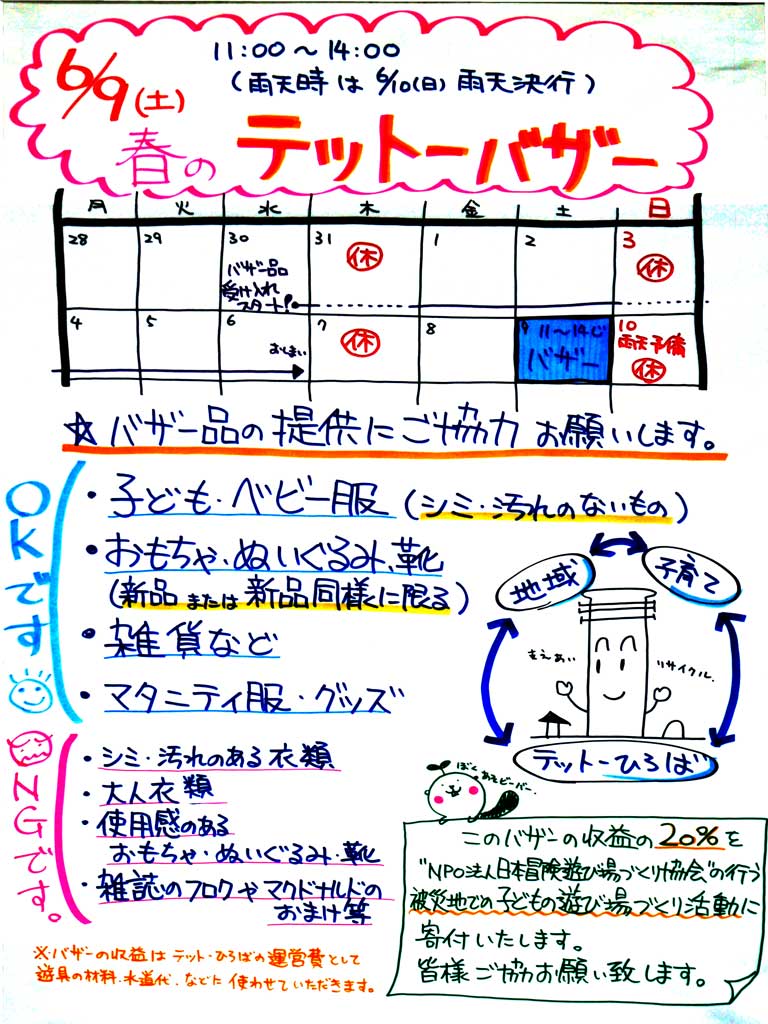 6/9(土)
11:00～14:00
(雨天時は 6/10(日) 雨天決行)
春の テットーバザー
月 火 水 木 金 土 日
28 29 30 31 1 2 3
休 休
バザー品
受け入れ
スタート!
4 5 6 7 8 9 10
おしまい
休
11～14じ
バザー
雨天予備
休
☆バザー品の提供にご協力お願いします。
OKです
・子ども・ベビー服(シミ・汚れのないもの)
・おもちゃ・ぬいぐるみ、靴
(新品または新品同様に限る)
・雑貨など
・マタニティ服・グッズ
地域
子育て
ささえあい
リサイクル.
テットーひろば
NGです。
・シミ・汚れのある衣類
・大人衣類
・使用感のある
おもちゃ・ぬいぐるみ・靴
・雑誌のフロクやマクドナルドの
おまけ等
ぼく あそビーバー.
このバザーの収益の20%を
"NPO法人日本冒険遊び場づくり協会"の行う
被災地での子どもの遊び場づくり活動に
寄付いたします。
皆様ご協力お願い致します。
※バザーの収益はテット・ひろばの運営費として
遊具の材料.水道代.などに使わせていただきます。